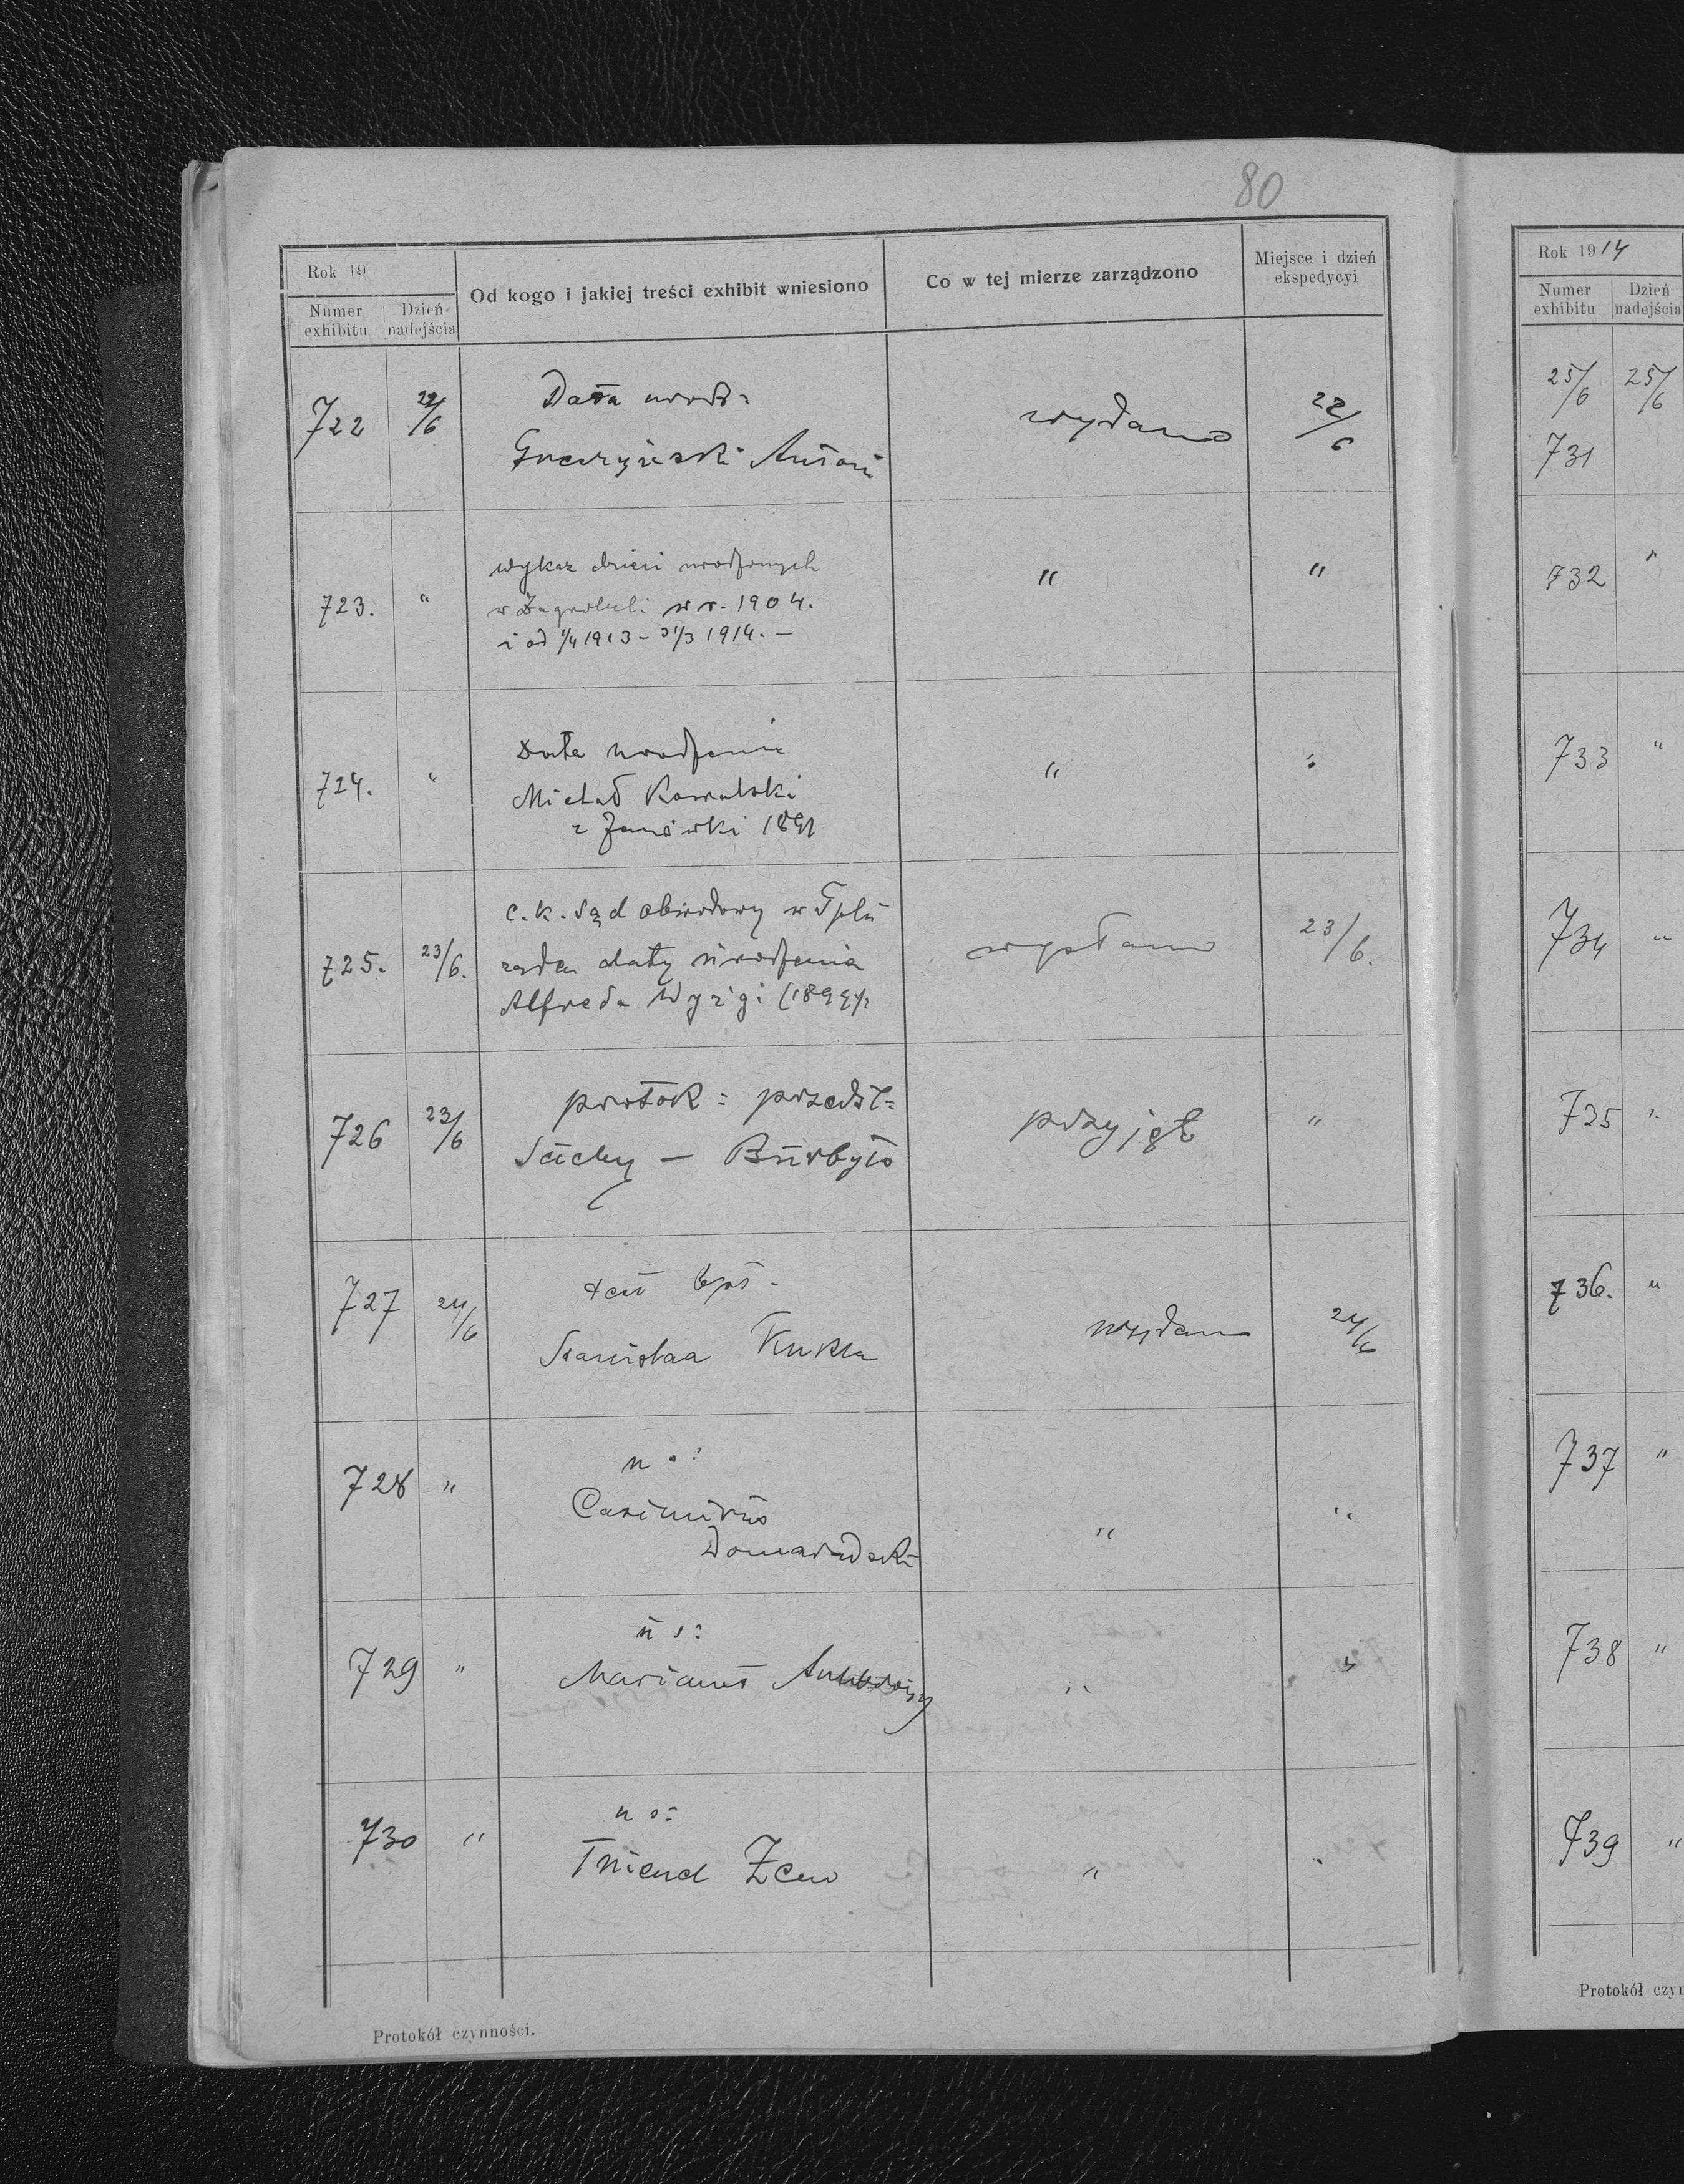 80
Rok 19
Numer exhibitu
Dzień nadejścia
Od kogo i jakiej treści exhibit wniesiono
Co w tej mierze zarządzono
Miejsce i dzień ekspedycyi
722 22/6 Data urodz: wydano 22/6
Antoni
723. " wykaz dzieci urodzonych " "
w Zagrobeli w r. 1904.
i od 1/4 1913 - 31/3 1914. -
724. " Data urodzenia " "
Michał Kowalski
z Janówki 1891
725. 23/6. c. k. Sąd obwodowy w Tplu wysłano 23/6.
żąda daty urodzenia
Alfreda
726 23/6 protok: przedśl: przyjęł "
Suchy - Burbyło
727 24/6 wydano 24/6
Stanislaa Kukla
728 " n s: " "
Casimirus
Domaradzki
729 " n s: " "
Marianus
730 " n s: " "
Zew
Protokół czynności.
Rok 1914
Numer exhibitu
Dzień nadejścia
25/6 25/6
731
732 "
733 "
734 "
735 "
736. "
737 "
738 "
739 "
Protokół czyn